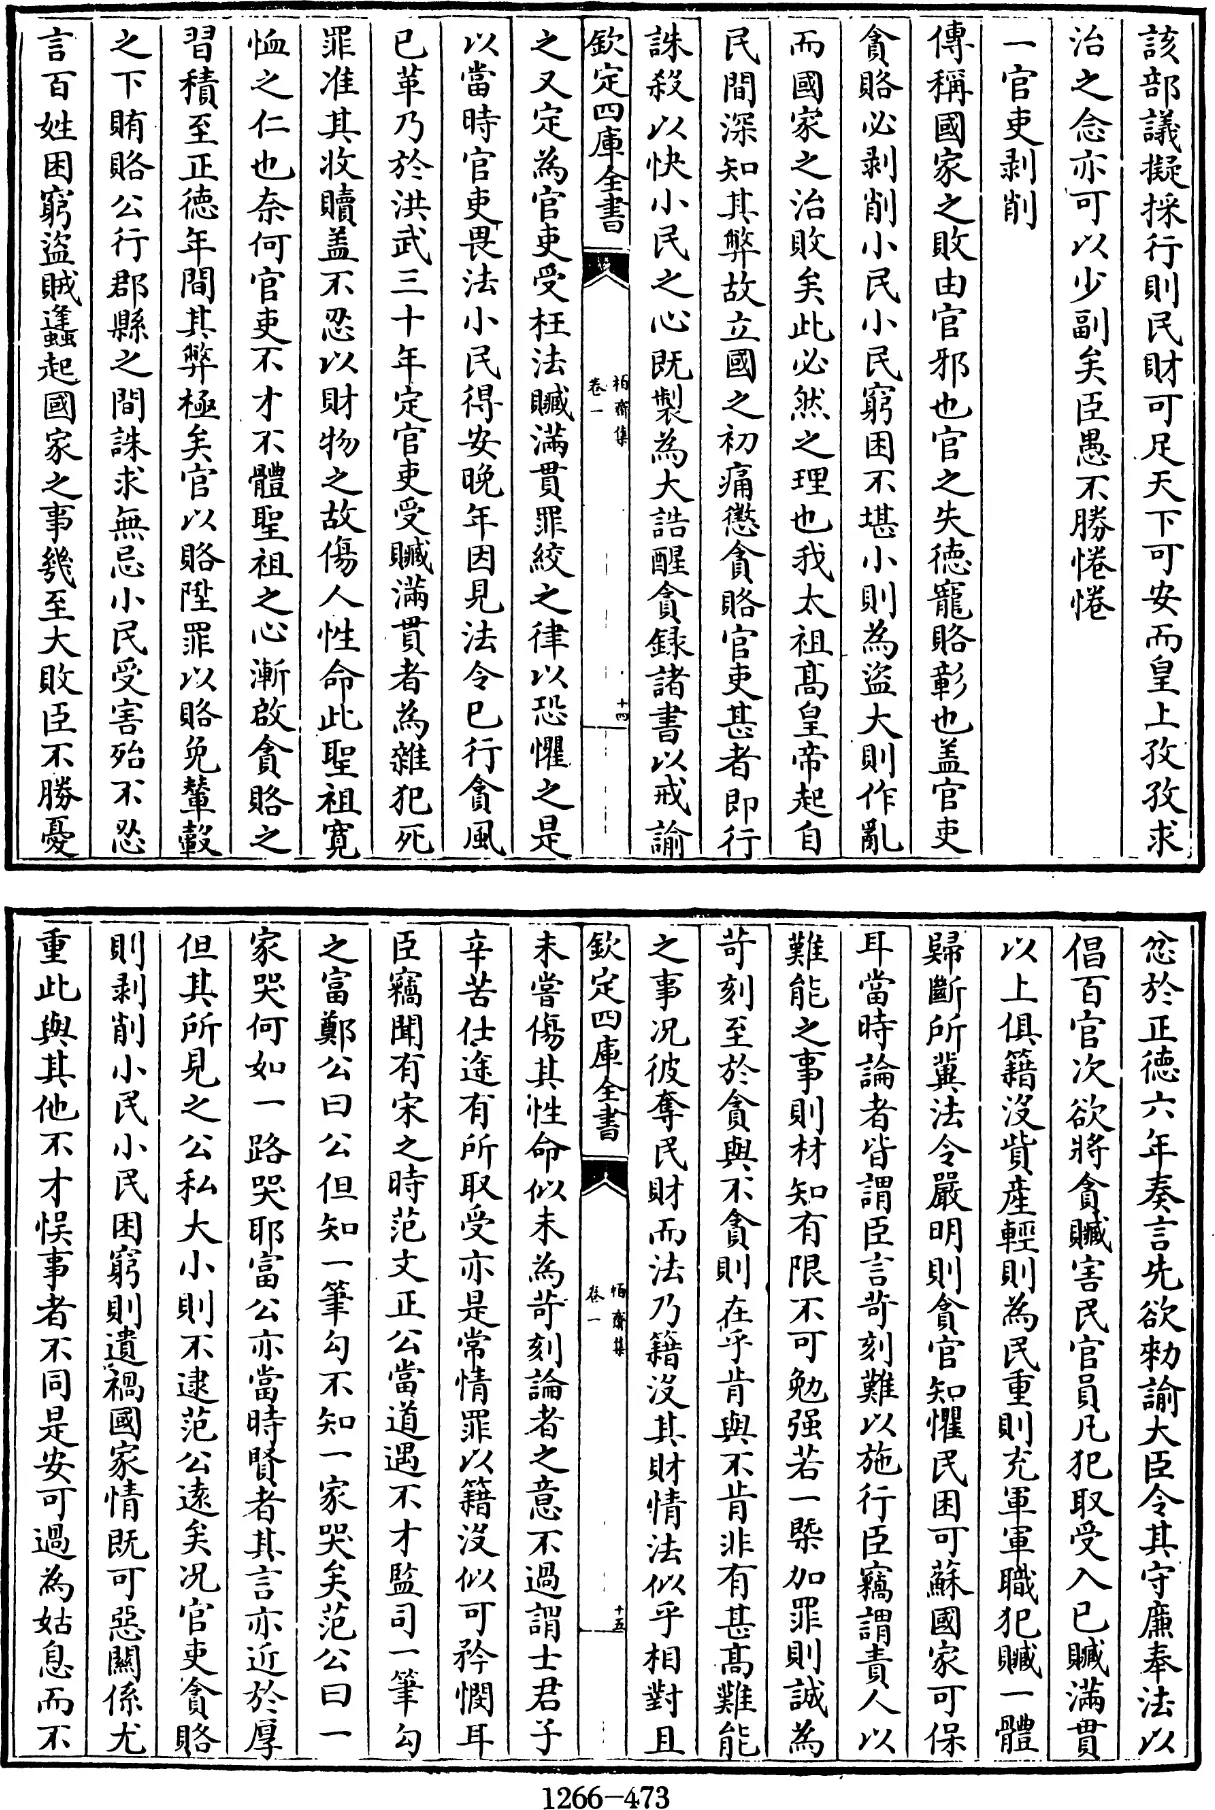 該部議擬採行則民財可足天下可安而皇上孜孜求
治之念亦可以少副矣臣愚不勝惓惓
一官吏剥削
傳稱國家之敗由官邪也官之失德寵賂彰也盖官吏
貪賂必剥削小民小民窮困不堪小則為盗大則作亂
而國家之治敗矣此必然之理也我太祖髙皇帝起自
民間深知其弊故立國之初痛懲貪賂官吏甚者即行
誅殺以快小民之心既製為大誥醒貪録諸書以戒諭
欽定四庫全書
栢齋集
卷一
十四
之又定為官吏受枉法贓滿貫罪絞之律以恐懼之是
以當時官吏畏法小民得安晚年因見法令已行貪風
已革乃於洪武三十年定官吏受贓滿貫者為雜犯死
罪准其收贖盖不忍以財物之故傷人性命此聖祖寛
恤之仁也奈何官吏不才不體聖祖之心漸啟貪賂之
習積至正德年間其弊極矣官以賂陞罪以賂免輦轂
之下賄賂公行郡縣之間誅求無忌小民受害殆不忍
言百姓困窮盗賊蠭起國家之事幾至大敗臣不勝憂
忿於正德六年奏言先欲勑諭大臣令其守廉奉法以
倡百官次欲將貪贓害民官員凡犯取受入已贓滿貫
以上俱籍没貲産輕則為民重則充軍軍職犯贓一體
歸斷所冀法令嚴明則貪官知懼民困可蘇國家可保
耳當時論者皆謂臣言苛刻難以施行臣竊謂責人以
難能之事則材知有限不可勉强若一槩加罪則誠為
苛刻至於貪與不貪則在乎肯與不肯非有甚髙難能
之事况彼奪民財而法乃籍没其財情法似乎相對且
欽定四庫全書
栢齋集
卷一
十五
未嘗傷其性命似未為苛刻論者之意不過謂士君子
辛苦仕途有所取受亦是常情罪以籍没似可矜憫耳
臣竊聞有宋之時范文正公當道遇不才監司一筆勾
之富鄭公曰公但知一筆勾不知一家哭矣范公曰一
家哭何如一路哭耶富公亦當時賢者其言亦近於厚
但其所見之公私大小則不逮范公遠矣况官吏貪賂
則剥削小民小民困窮則遺禍國家情既可惡關係尤
重此與其他不才悞事者不同是安可過為姑息而不
1266—473